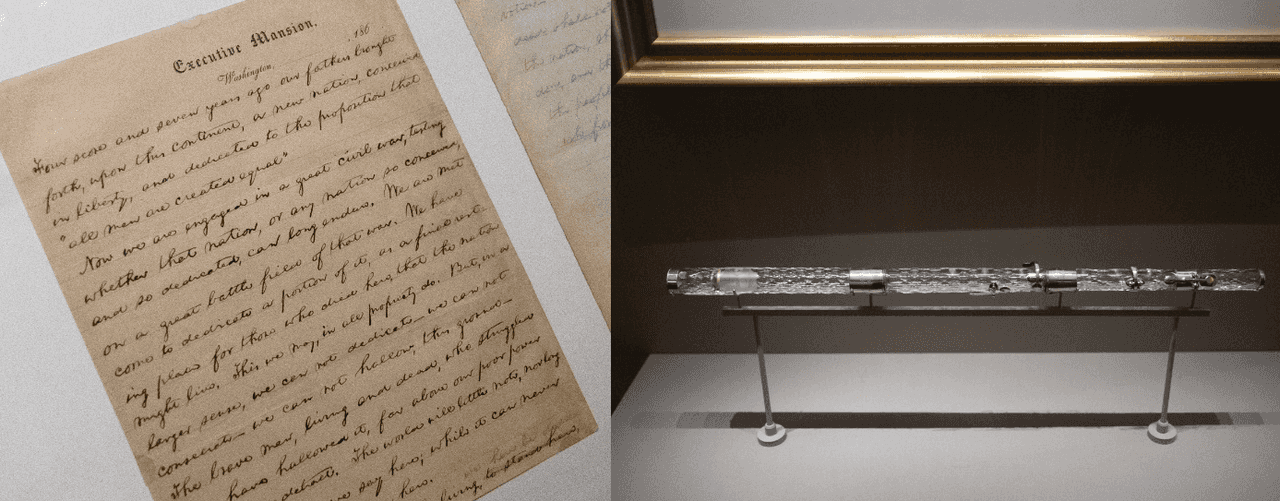 Executive Mansion,
Washington, 186
Four score and seven years ago our fathers brought
forth, upon this continent, a new nation, conceived
in liberty, and dedicated to the proposition that
"all men are created equal"
Now we are engaged in a great civil war, testing
whether that nation, or any nation so conceived,
and so dedicated, can long endure. We are met
on a great battle field of that war. We have
come to dedicate a portion of it, as a final rest-
ing place for those who died here, that the nation
might live. This we may, in all propriety do. But, in a
larger sense, we can not dedicate — we can not
consecrate — we can not hallow, this ground —
The brave men, living and dead, who struggled
have hallowed it, far above our poor power
detract. The world will little note, nor long
we say here; while it can never
here.
living, to stand here,
nation
shall
the nation,
the people